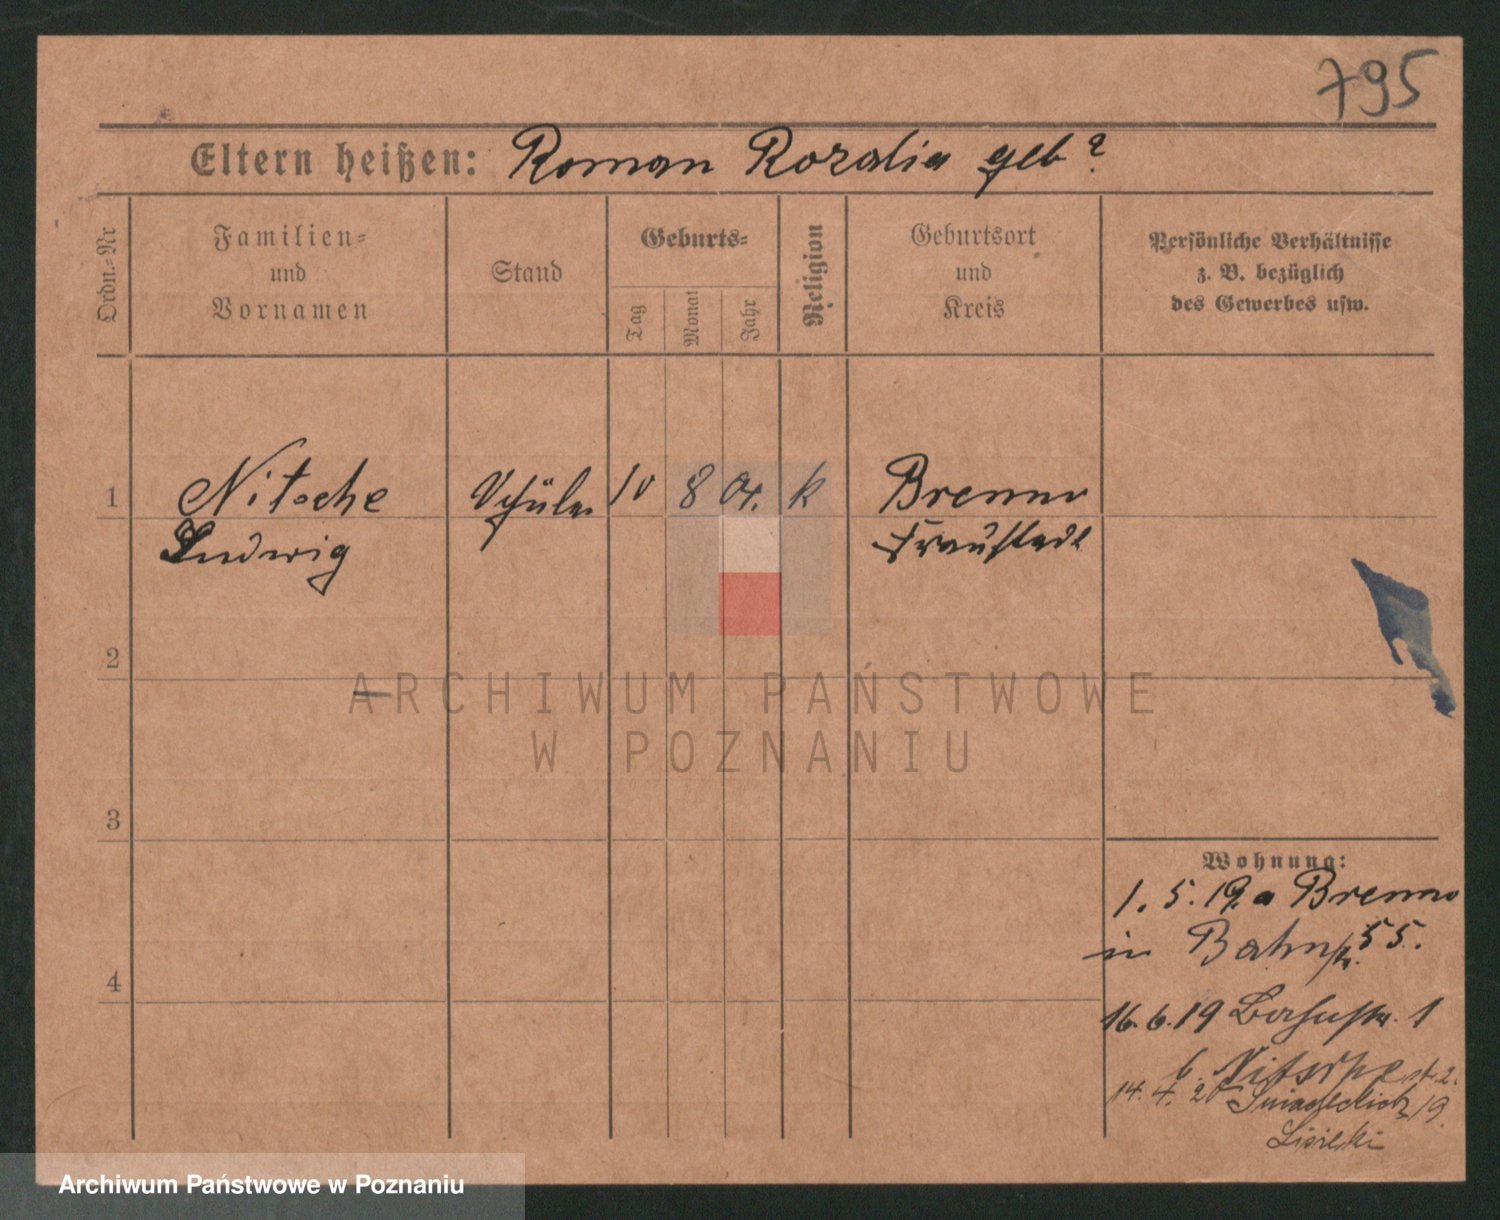 795
Eltern heißen: Roman Rozalia geb?
Ordn.=Nr
Familien=
und
Vornamen
Stand
Geburts=
Tag
Monat
Jahr
Religion
Geburtsort
und
Kreis
Persönliche Verhältnisse
z. B. bezüglich
des Gewerbes usw.
1 Nitsche Schüler 10 8 04. k Brenno
Ludwig Fraustadt
2
3
4
Wohnung:
1. 5. 19. a Brenno
in Bahnstr. 55.
16. 6. 19 1
b. Nitsche
14. 4. 20 19.
Lisiecki
ARCHIWUM PAŃSTWOWE
W POZNANIU
Archiwum Państwowe w Poznaniu